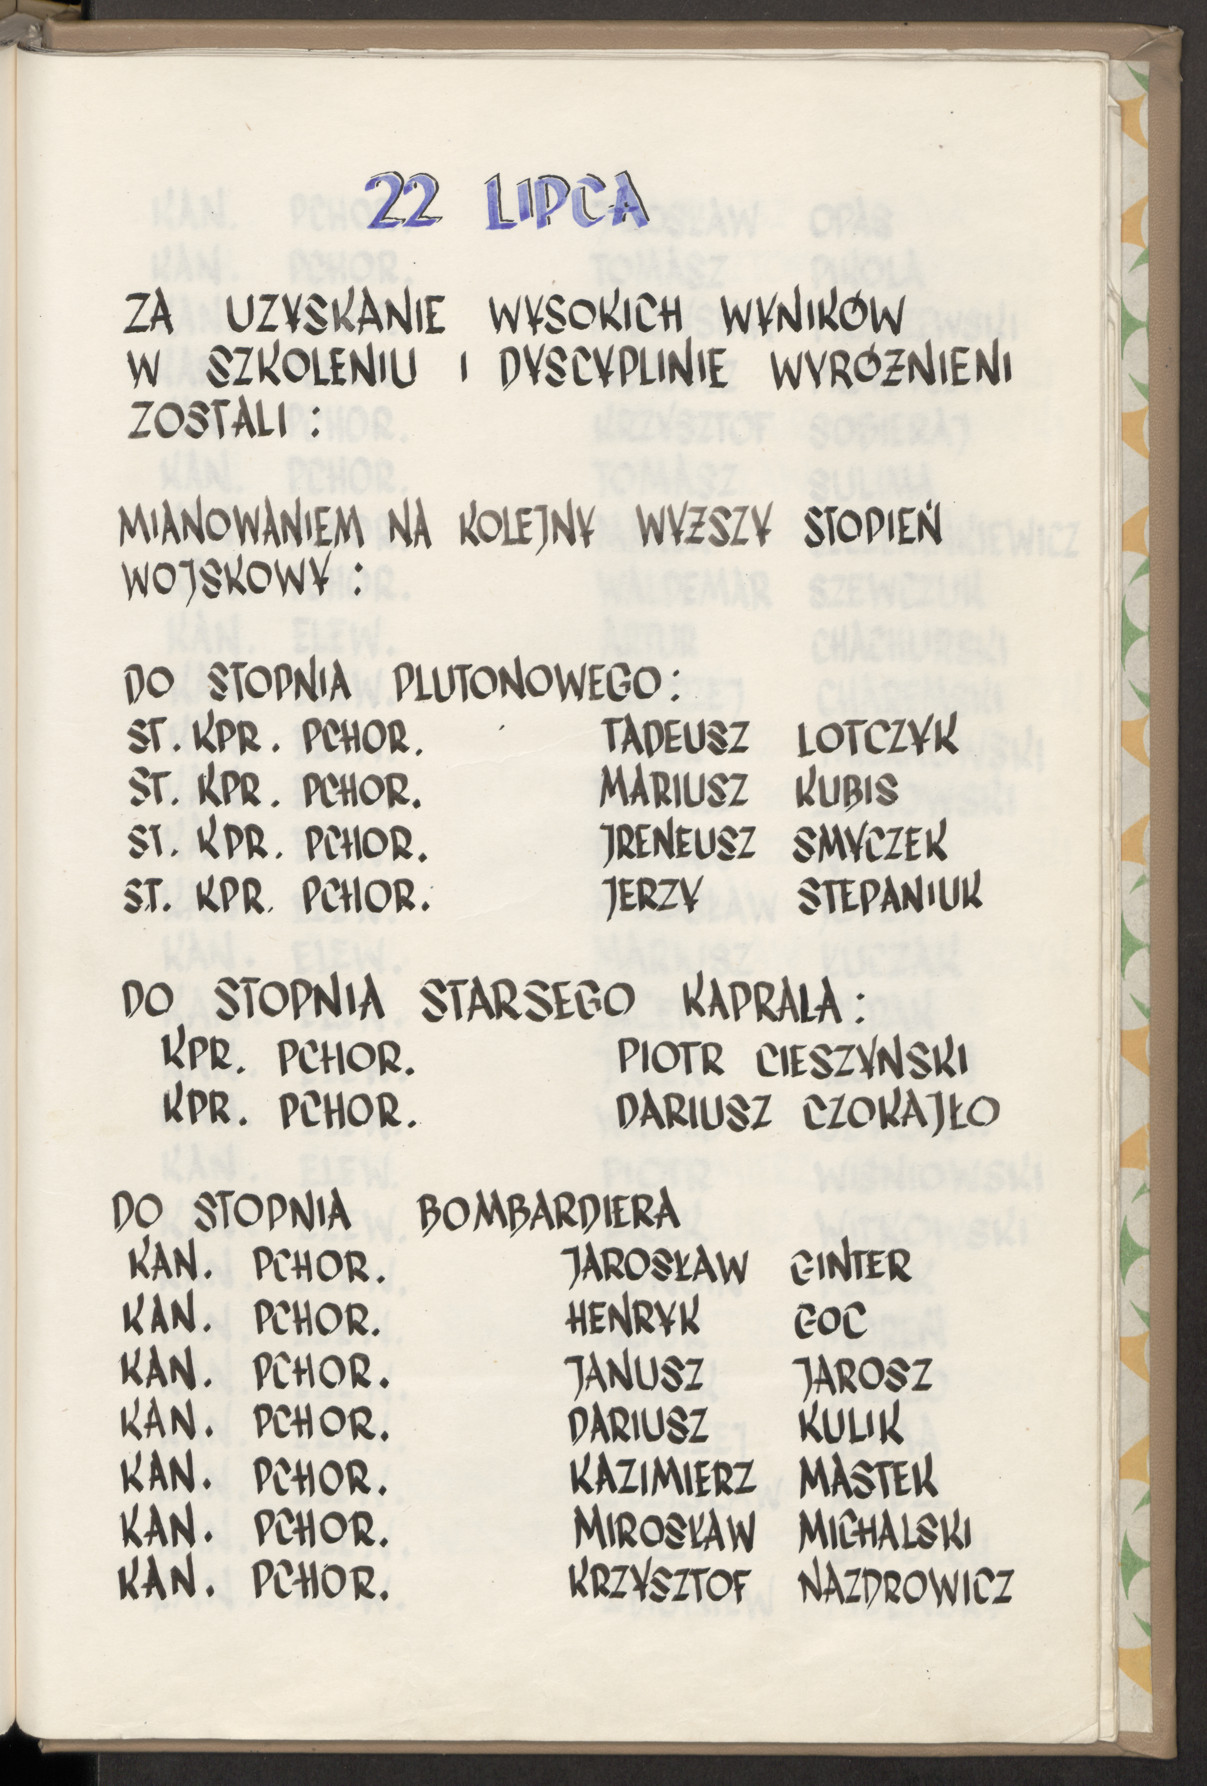 22 LIPCA
ZA UZYSKANIE WYSOKICH WYNIKÓW
W SZKOLENIU I DYSCYPLINIE WYRÓŻNIENI
ZOSTALI :
MIANOWANIEM NA KOLEJNY WYŻSZY STOPIEŃ
WOJSKOWY :
DO STOPNIA PLUTONOWEGO :
ST. KPR. PCHOR. TADEUSZ LOTCZYK
ST. KPR. PCHOR. MARIUSZ KUBIS
ST. KPR. PCHOR. IRENEUSZ SMYCZEK
ST. KPR. PCHOR. JERZY STEPANIUK
DO STOPNIA STARSEGO KAPRALA :
KPR. PCHOR. PIOTR CIESZYNSKI
KPR. PCHOR. DARIUSZ CZOKAJŁO
DO STOPNIA BOMBARDIERA
KAN. PCHOR. JAROSŁAW GINTER
KAN. PCHOR. HENRYK GOC
KAN. PCHOR. JANUSZ JAROSZ
KAN. PCHOR. DARIUSZ KULIK
KAN. PCHOR. KAZIMIERZ MASTEK
KAN. PCHOR. MIROSŁAW MICHALSKI
KAN. PCHOR. KRZYSZTOF NAZDROWICZ